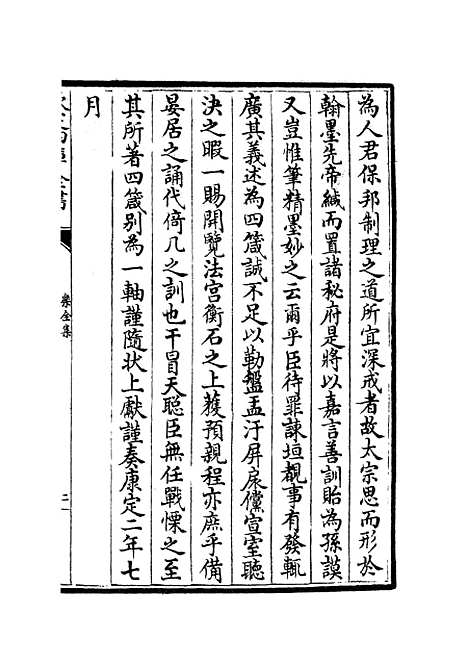 為人君保邦制理之道所宜深戒者故太宗思而形於
翰墨先帝緘而置諸秘府是將以嘉言善訓貽為孫謨
又豈惟筆精墨妙之云爾乎臣待罪諫垣覩事有發輒
廣其義述為四箴誠不足以勒盤盂汙屏扆儻宣室聽
決之暇一賜開覽法宫衡石之上獲預親程亦庶乎備
宴居之誦代倚几之訓也干冒天聰臣無任戰慄之至
其所著四箴别為一軸謹隨状上獻謹奏康定二年七
月
樂全集
二